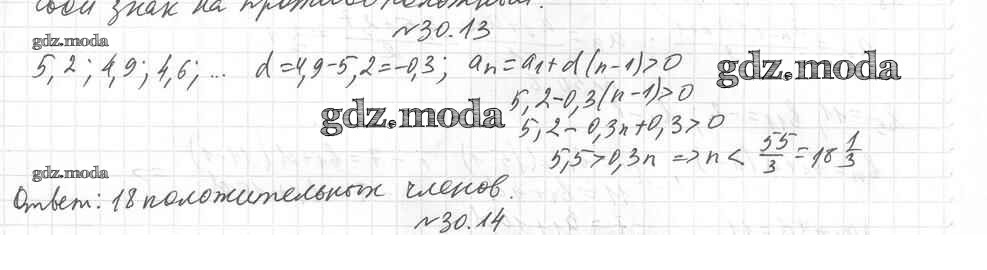 соби знак на противоположный.
№30.13
gdz.moda
5,2; 4,9; 4,6; ... d=4,9-5,2=-0,3; an=a1+d(n-1)>0
gdz.moda
5,2-0,3(n-1)>0
gdz.moda
5,2-0,3n+0,3>0
5,5>0,3n => n < 55/3 = 18 1/3
gdz.moda
Ответ: 18 положительных членов.
№30.14